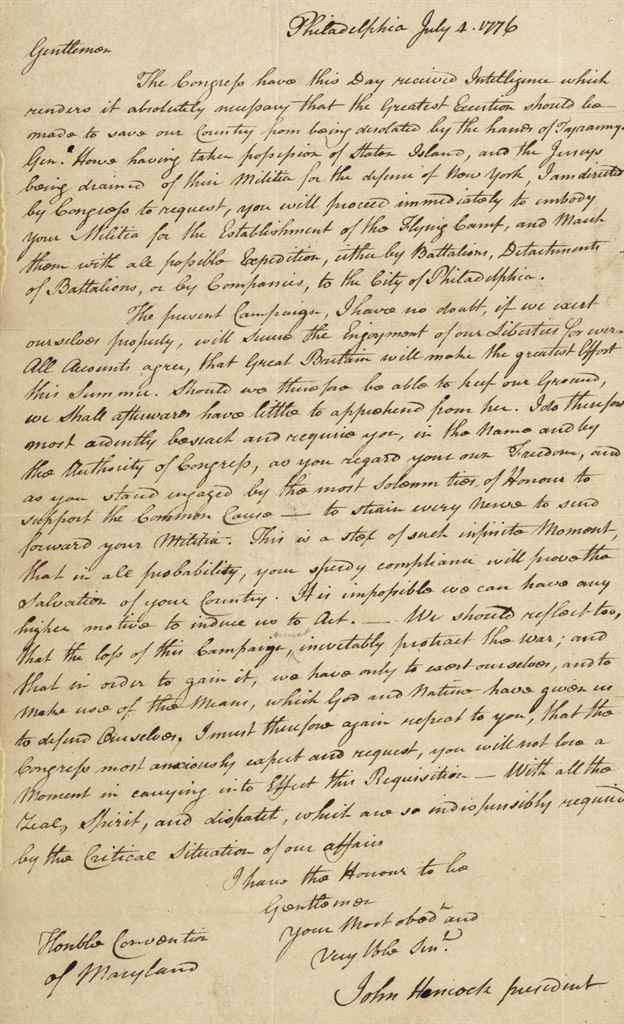 Philadelphia July 4. 1776
Gentlemen
The Congress have this Day received Intelligence which
renders it absolutely necessary that the Greatest Exertion should be
made to save our Country from being desolated by the hands of Tyranny.
Genl. Howe having taken possession of Staten Island, and the Jerseys
being drained of their Militia for the defense of New York, I am directed
by Congress to request, you will proceed immediately to embody
your Militia for the Establishment of the Flying Camp, and March
them with all possible Expedition, either by Battalions, Detachments
of Battalions, or by Companies, to the City of Philadelphia.
The present Campaign, I have no doubt, if we exert
ourselves properly, will secure the Enjoyment of our Liberties for ever.
All Accounts agree, that Great Britain will make the greatest Effort
this Summer. Should we therefore be able to keep our Ground,
we shall afterwards have little to apprehend from her. I do therefore
most ardently beseech and require you, in the Name and by
the Authority of Congress, as you regard your own Freedom, and
as you stand engaged by the most Solemn ties of Honour to
support the Common Cause — to strain every Nerve to send
forward your Militia. This is a step of such infinite Moment,
that in all probability, your speedy compliance will prove the
Salvation of your Country. It is impossible we can have any
higher motive to induce us to Act. — We should reflect too,
that the loss of this Campaign, inevitably protract the war; and
that in order to gain it, we have only to exert ourselves, and to
make use of the Means, which God and Nature have given us
to defend Ourselves. I must therefore again repeat to you, that the
Congress most anxiously expect and request, you will not lose a
Moment in carrying into Effect this Requisition — With all the
Zeal, Spirit, and dispatch, which are so indispensibly required
by the Critical Situation of our affairs
I have the Honour to be
Gentlemen
Your Most obedt and
very Hble Servt.
Honble Convention
of Maryland
John Hancock president